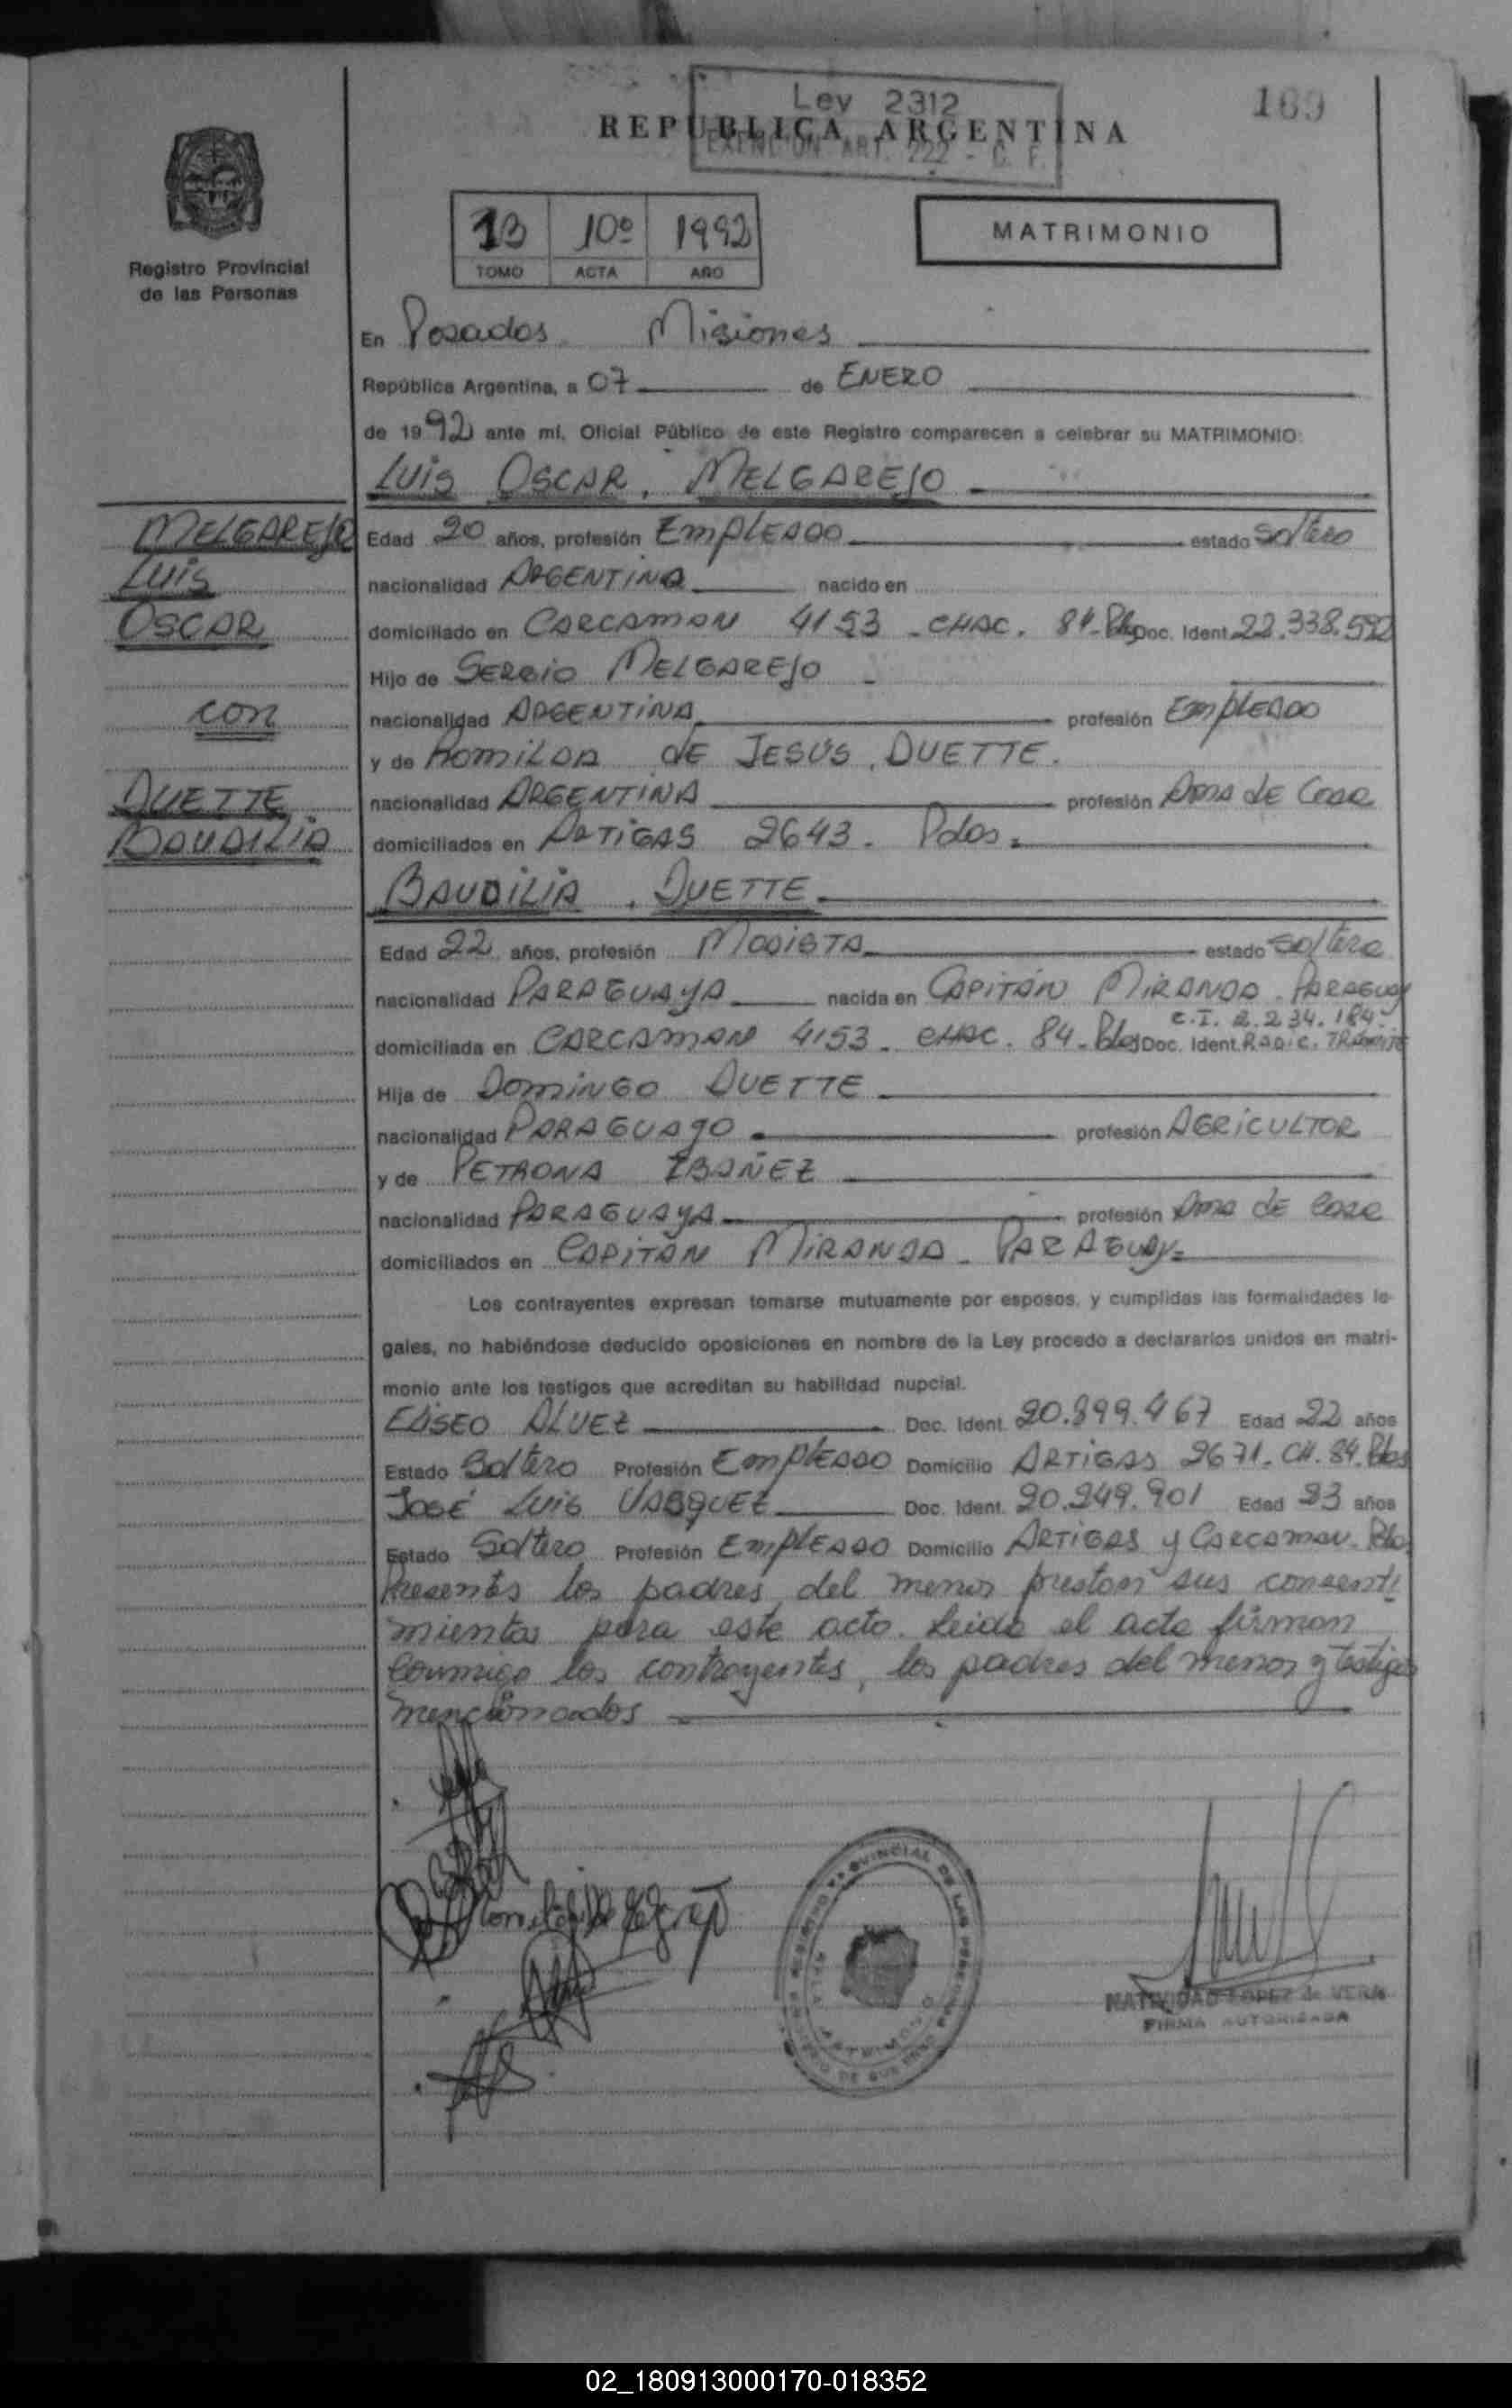 Ley 2312
169
REPUBLICA ARGENTINA
EXENCION ART. 222 - C. F.
13 10º 1992
TOMO ACTA AÑO
MATRIMONIO
Registro Provincial
de las Personas
En Posadas Misiones
República Argentina, a 07 de ENERO
de 1992 ante mí, Oficial Público de este Registro comparecen a celebrar su MATRIMONIO:
LUIS OSCAR MELGAREJO
MELGAREJO
LUIS
OSCAR
con
DUETTE
BAUDILIA
Edad 20 años, profesión EMPLEADO estado Soltero
nacionalidad ARGENTINA nacido en
domiciliado en CARCAMAN 4153 - CHAC. 84 - Pdas Doc. Ident. 22.338.592
Hijo de SERGIO MELGAREJO
nacionalidad ARGENTINA profesión EMPLEADO
y de ROMILDA DE JESÚS DUETTE.
nacionalidad ARGENTINA profesión Ama de Casa
domiciliados en ARTIGAS 2643. Pdas.
BAUDILIA DUETTE
Edad 22 años, profesión MODISTA estado Soltera
nacionalidad PARAGUAYA nacida en CAPITÁN MIRANDA. PARAGUAY
C.I. 2.234.184.
domiciliada en CARCAMAN 4153 - CHAC. 84 - Pdas Doc. Ident. RADIC. TRAMITE
Hija de DOMINGO DUETTE
nacionalidad PARAGUAYO profesión AGRICULTOR
y de PETRONA IBAÑEZ
nacionalidad PARAGUAYA profesión Ama de Casa
domiciliados en CAPITAN MIRANDA - PARAGUAY
Los contrayentes expresan tomarse mutuamente por esposos, y cumplidas las formalidades le-
gales, no habiéndose deducido oposiciones en nombre de la Ley procedo a declararlos unidos en matri-
monio ante los testigos que acreditan su habilidad nupcial.
ELISEO ALVEZ Doc. Ident. 20.899.467 Edad 22 años
Estado Soltero Profesión EMPLEADO Domicilio ARTIGAS 2671. CH. 84. Pdas
JOSÉ LUIS VASQUEZ Doc. Ident. 20.249.901 Edad 23 años
Estado Soltero Profesión EMPLEADO Domicilio ARTIGAS y CARCAMAN. Pdas
Presentes los padres del menor prestan sus consenti
mientos para este acto. Leída el acta firman
conmigo los contrayentes, los padres del menor y testigos
mencionados
REGISTRO PROVINCIAL DE LAS PERSONAS
MATRIMONIO
NATIVIDAD LOPEZ de VERA
FIRMA AUTORIZADA
02_180913000170-018352